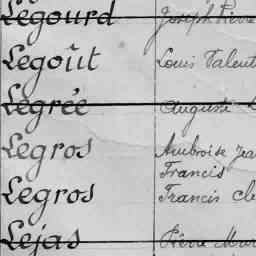 Legourd Joseph Pierre
Legoût Louis Valent
Legrée Auguste
Legros Ambroise Jea
Francis
Legros Francis Cle
Lejas Pierre Mar